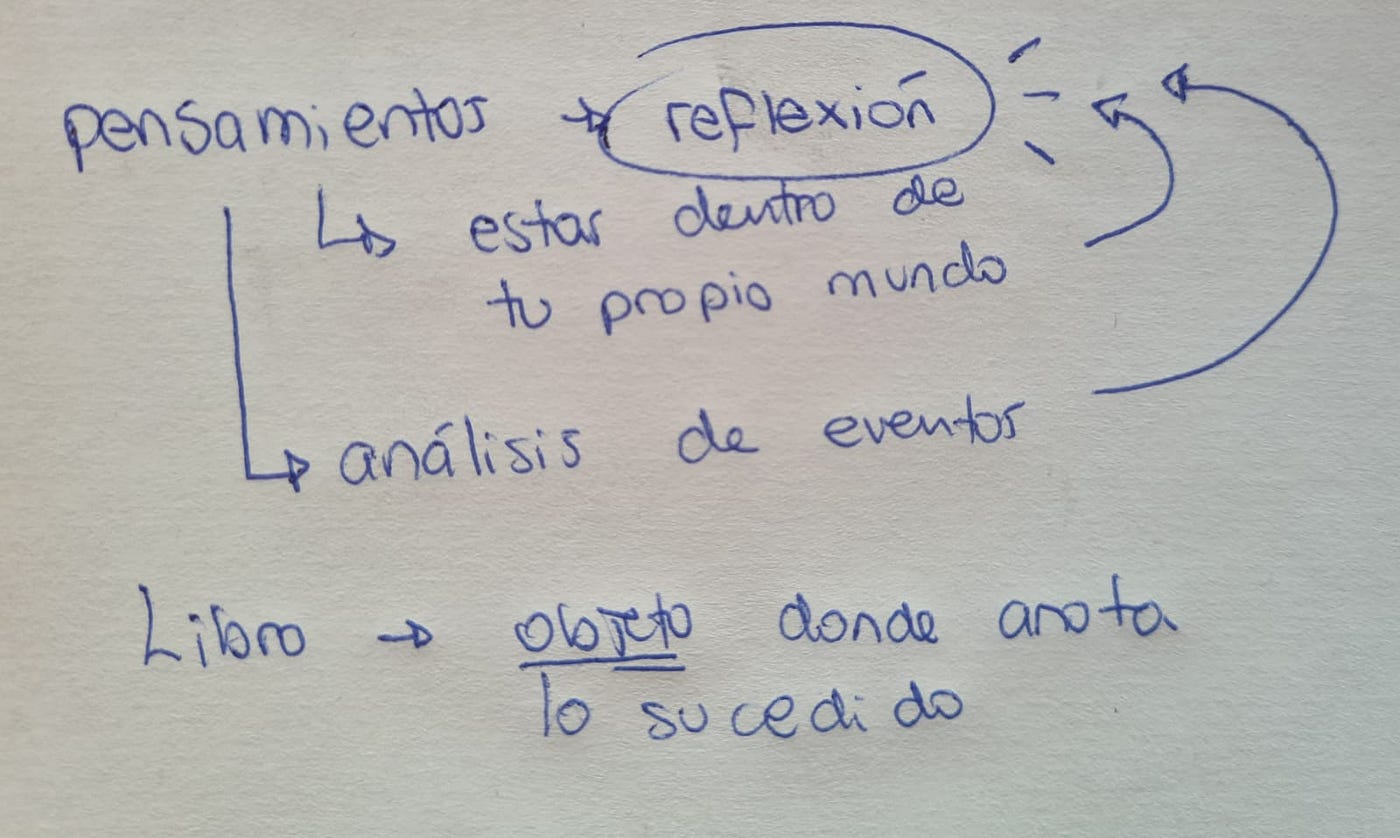 pensamientos → reflexión
↳ estar dentro de
tu propio mundo
↳ análisis de eventos
Libro → objeto donde anota
lo sucedido